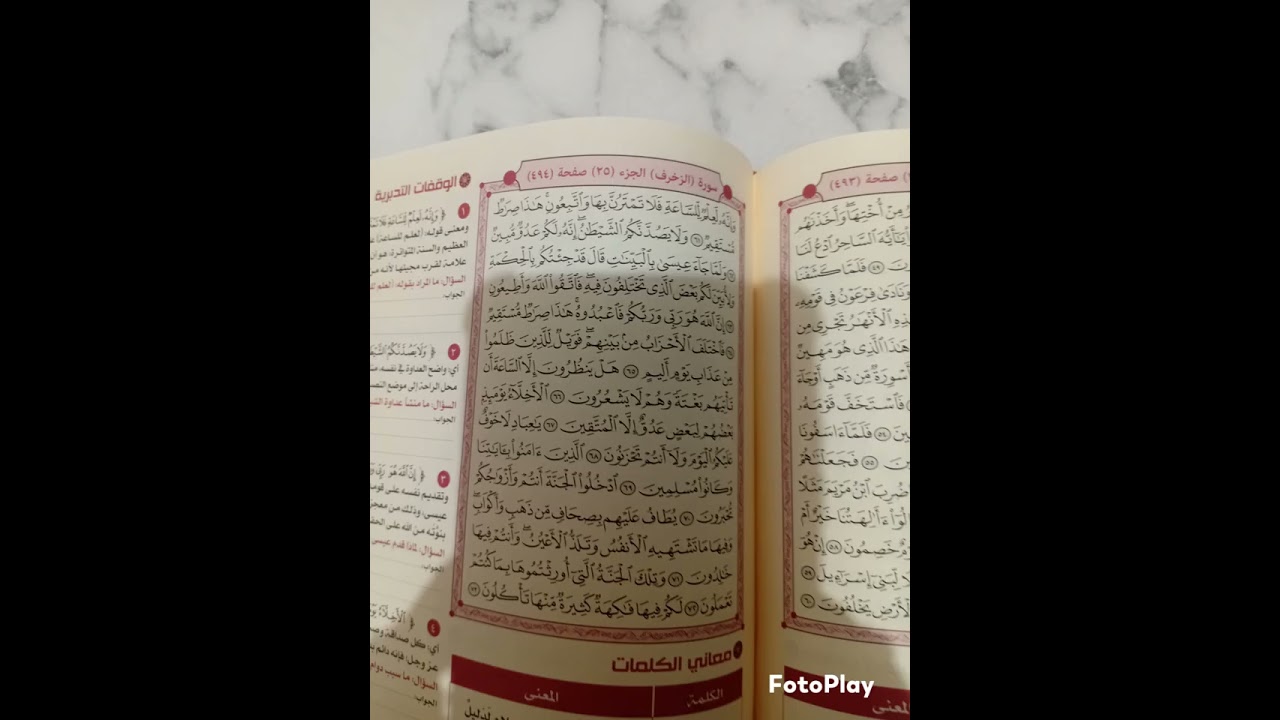 سورة (الزخرف) الجزء (٢٥) صفحة (٤٩٤)
وَإِنَّهُۥ لَعِلْمٌ لِّلسَّاعَةِ فَلَا تَمْتَرُنَّ بِهَا وَٱتَّبِعُونِ ۚ هَٰذَا صِرَٰطٌ
مُّسْتَقِيمٌ ٦١ وَلَا يَصُدَّنَّكُمُ ٱلشَّيْطَٰنُ ۖ إِنَّهُۥ لَكُمْ عَدُوٌّ مُّبِينٌ
٦٢ وَلَمَّا جَآءَ عِيسَىٰ بِٱلْبَيِّنَٰتِ قَالَ قَدْ جِئْتُكُم بِٱلْحِكْمَةِ
وَلِأُبَيِّنَ لَكُم بَعْضَ ٱلَّذِى تَخْتَلِفُونَ فِيهِ ۖ فَٱتَّقُوا۟ ٱللَّهَ وَأَطِيعُونِ
٦٣ إِنَّ ٱللَّهَ هُوَ رَبِّى وَرَبُّكُمْ فَٱعْبُدُوهُ ۚ هَٰذَا صِرَٰطٌ مُّسْتَقِيمٌ
٦٤ فَٱخْتَلَفَ ٱلْأَحْزَابُ مِنۢ بَيْنِهِمْ ۖ فَوَيْلٌ لِّلَّذِينَ ظَلَمُوا۟
مِنْ عَذَابِ يَوْمٍ أَلِيمٍ ٦٥ هَلْ يَنظُرُونَ إِلَّا ٱلسَّاعَةَ أَن
تَأْتِيَهُم بَغْتَةً وَهُمْ لَا يَشْعُرُونَ ٦٦ ٱلْأَخِلَّآءُ يَوْمَئِذٍۭ
بَعْضُهُمْ لِبَعْضٍ عَدُوٌّ إِلَّا ٱلْمُتَّقِينَ ٦٧ يَٰعِبَادِ لَا خَوْفٌ
عَلَيْكُمُ ٱلْيَوْمَ وَلَآ أَنتُمْ تَحْزَنُونَ ٦٨ ٱلَّذِينَ ءَامَنُوا۟ بِـَٔايَٰتِنَا
وَكَانُوا۟ مُسْلِمِينَ ٦٩ ٱدْخُلُوا۟ ٱلْجَنَّةَ أَنتُمْ وَأَزْوَٰجُكُمْ
تُحْبَرُونَ ٧٠ يُطَافُ عَلَيْهِم بِصِحَافٍ مِّن ذَهَبٍ وَأَكْوَابٍ ۖ
وَفِيهَا مَا تَشْتَهِيهِ ٱلْأَنفُسُ وَتَلَذُّ ٱلْأَعْيُنُ ۖ وَأَنتُمْ فِيهَا
خَٰلِدُونَ ٧١ وَتِلْكَ ٱلْجَنَّةُ ٱلَّتِىٓ أُورِثْتُمُوهَا بِمَا كُنتُمْ
تَعْمَلُونَ ٧٢ لَكُمْ فِيهَا فَٰكِهَةٌ كَثِيرَةٌ مِّنْهَا تَأْكُلُونَ ٧٣
معاني الكلمات
الكلمة المعنى
الوقفات التدبرية
١
ومعنى قوله: (لعلم للساعة)
العظيم والسنة المتواترة، هو أن
علامة لقرب مجيئها لأنه من
السؤال: ما المراد بقوله: (لعلم
الجواب:
٢
أي: واضح العداوة في نفسه،
محل الراحة إلى موضع النصب
السؤال: ما منشأ عداوة
الجواب:
٣
وتقديم نفسه على قومه
عيسى: وذلك من
بنوته من الله على
السؤال: لماذا قدم عيسى
الجواب:
٤
أي: كل صداقة
عز وجل؛ فإنه دائم
السؤال: ما سبب دوام
الجواب:
صفحة (٤٩٣)
مِنْ أُخْتِهَا ۖ وَأَخَذْنَٰهُم
يَٰٓأَيُّهَ ٱلسَّاحِرُ ٱدْعُ لَنَا
٤٩ فَلَمَّا كَشَفْنَا
وَنَادَىٰ فِرْعَوْنُ فِى قَوْمِهِۦ
ٱلْأَنْهَٰرُ تَجْرِى مِن
هَٰذَا ٱلَّذِى هُوَ مَهِينٌ
أَسْوِرَةٌ مِّن ذَهَبٍ أَوْ جَآءَ
فَٱسْتَخَفَّ قَوْمَهُۥ
٥٤ فَلَمَّآ ءَاسَفُونَا
٥٥ فَجَعَلْنَٰهُمْ
ضُرِبَ ٱبْنُ مَرْيَمَ مَثَلًا
ءَأَٰلِهَتُنَا خَيْرٌ أَمْ
خَصِمُونَ ٥٨ إِنْ هُوَ
لِّبَنِىٓ إِسْرَٰٓءِيلَ ٥٩
ٱلْأَرْضِ يَخْلُفُونَ ٦٠
المعنى
FotoPlay